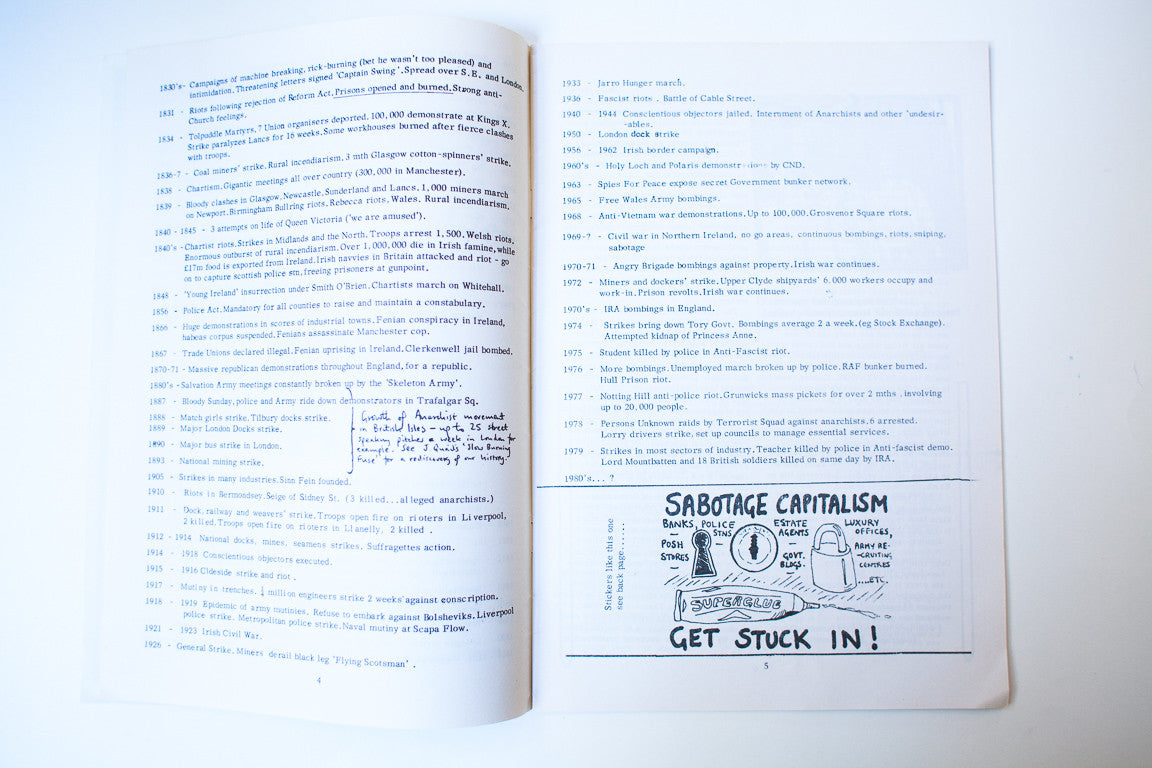 1830's- Campaigns of machine breaking, rick-burning (bet he wasn't too pleased) and
intimidation. Threatening letters signed 'Captain Swing'. Spread over S.E. and London.
1831 - Riots following rejection of Reform Act. Prisons opened and burned. Strong anti-
Church feelings.
1834 - Tolpuddle Martyrs, 7 Union organisers deported. 100,000 demonstrate at Kings X.
Strike paralyzes Lancs for 16 weeks. Some workhouses burned after fierce clashes
with troops.
1836-7 - Coal miners' strike. Rural incendiarism. 3 mth Glasgow cotton-spinners' strike.
1838 - Chartism. Gigantic meetings all over country (300,000 in Manchester).
1839 - Bloody clashes in Glasgow, Newcastle, Sunderland and Lancs. 1,000 miners march
on Newport. Birmingham Bullring riots. Rebecca riots, Wales. Rural incendiarism.
1840 - 1845 - 3 attempts on life of Queen Victoria ('we are amused').
1840's - Chartist riots. Strikes in Midlands and the North. Troops arrest 1,500. Welsh riots.
Enormous outburst of rural incendiarism. Over 1,000,000 die in Irish famine, while
£17m food is exported from Ireland. Irish navvies in Britain attacked and riot - go
on to capture scottish police stn, freeing prisoners at gunpoint.
1848 - 'Young Ireland' insurrection under Smith O'Brien. Chartists march on Whitehall.
1856 - Police Act. Mandatory for all counties to raise and maintain a constabulary.
1866 - Huge demonstrations in scores of industrial towns. Fenian conspiracy in Ireland,
habeas corpus suspended. Fenians assassinate Manchester cop.
1867 - Trade Unions declared illegal. Fenian uprising in Ireland. Clerkenwell jail bombed.
1870-71 - Massive republican demonstrations throughout England, for a republic.
1880's - Salvation Army meetings constantly broken up by the 'Skeleton Army'.
1887 - Bloody Sunday, police and Army ride down demonstrators in Trafalgar Sq.
1888 - Match girls strike. Tilbury docks strike.
1889 - Major London Docks strike.
1890 - Major bus strike in London.
1893 - National mining strike.
Growth of Anarchist movement
in British Isles - up to 25 street
speaking pitches a week in London for
example. See J. Quail's 'Slow Burning
Fuse' for a rediscovery of our history.
1905 - Strikes in many industries. Sinn Fein founded.
1910 - Riots in Bermondsey. Seige of Sidney St. (3 killed...alleged anarchists.)
1911 - Dock, railway and weavers' strike. Troops open fire on rioters in Liverpool,
2 killed. Troops open fire on rioters in Llanelly, 2 killed.
1912 - 1914 National docks, mines, seamens strikes. Suffragettes action.
1914 - 1918 Conscientious objectors executed.
1915 - 1916 Cldeside strike and riot.
1917 - Mutiny in trenches. ¼ million engineers strike 2 weeks against conscription.
1918 - 1919 Epidemic of army mutinies. Refuse to embark against Bolsheviks. Liverpool
police strike. Metropolitan police strike. Naval mutiny at Scapa Flow.
1921 - 1923 Irish Civil War.
1926 - General Strike. Miners derail black leg 'Flying Scotsman'.
4
1933 - Jarro Hunger march.
1936 - Fascist riots. Battle of Cable Street.
1940 - 1944 Conscientious objectors jailed. Internment of Anarchists and other 'undesir-
-ables.
1950 - London dock strike
1956 - 1962 Irish border campaign.
1960's - Holy Loch and Polaris demonstrations by CND.
1963 - Spies For Peace expose secret Government bunker network.
1965 - Free Wales Army bombings.
1968 - Anti-Vietnam war demonstrations. Up to 100,000. Grosvenor Square riots.
1969-? - Civil war in Northern Ireland, no go areas, continuous bombings, riots, sniping,
sabotage
1970-71 - Angry Brigade bombings against property. Irish war continues.
1972 - Miners and dockers' strike. Upper Clyde shipyards' 6,000 workers occupy and
work-in. Prison revolts. Irish war continues.
1970's - IRA bombings in England.
1974 - Strikes bring down Tory Govt. Bombings average 2 a week. (eg Stock Exchange).
Attempted kidnap of Princess Anne.
1975 - Student killed by police in Anti-Fascist riot.
1976 - More bombings. Unemployed march broken up by police. RAF bunker burned.
Hull Prison riot.
1977 - Notting Hill anti-police riot. Grunwicks mass pickets for over 2 mths, involving
up to 20,000 people.
1978 - Persons Unknown raids by Terrorist Squad against anarchists, 6 arrested.
Lorry drivers strike, set up councils to manage essential services.
1979 - Strikes in most sectors of industry. Teacher killed by police in Anti-fascist demo.
Lord Mountbatten and 18 British soldiers killed on same day by IRA.
1980's... ?
Stickers like this one
see back page......
SABOTAGE CAPITALISM
BANKS,
POSH
STORES
POLICE
STNS
ESTATE
AGENTS
GOVT.
BLDGS.
LUXURY
OFFICES,
ARMY RE-
-CRUITING
CENTRES
....ETC.
SUPERGLUE
GET STUCK IN!
5